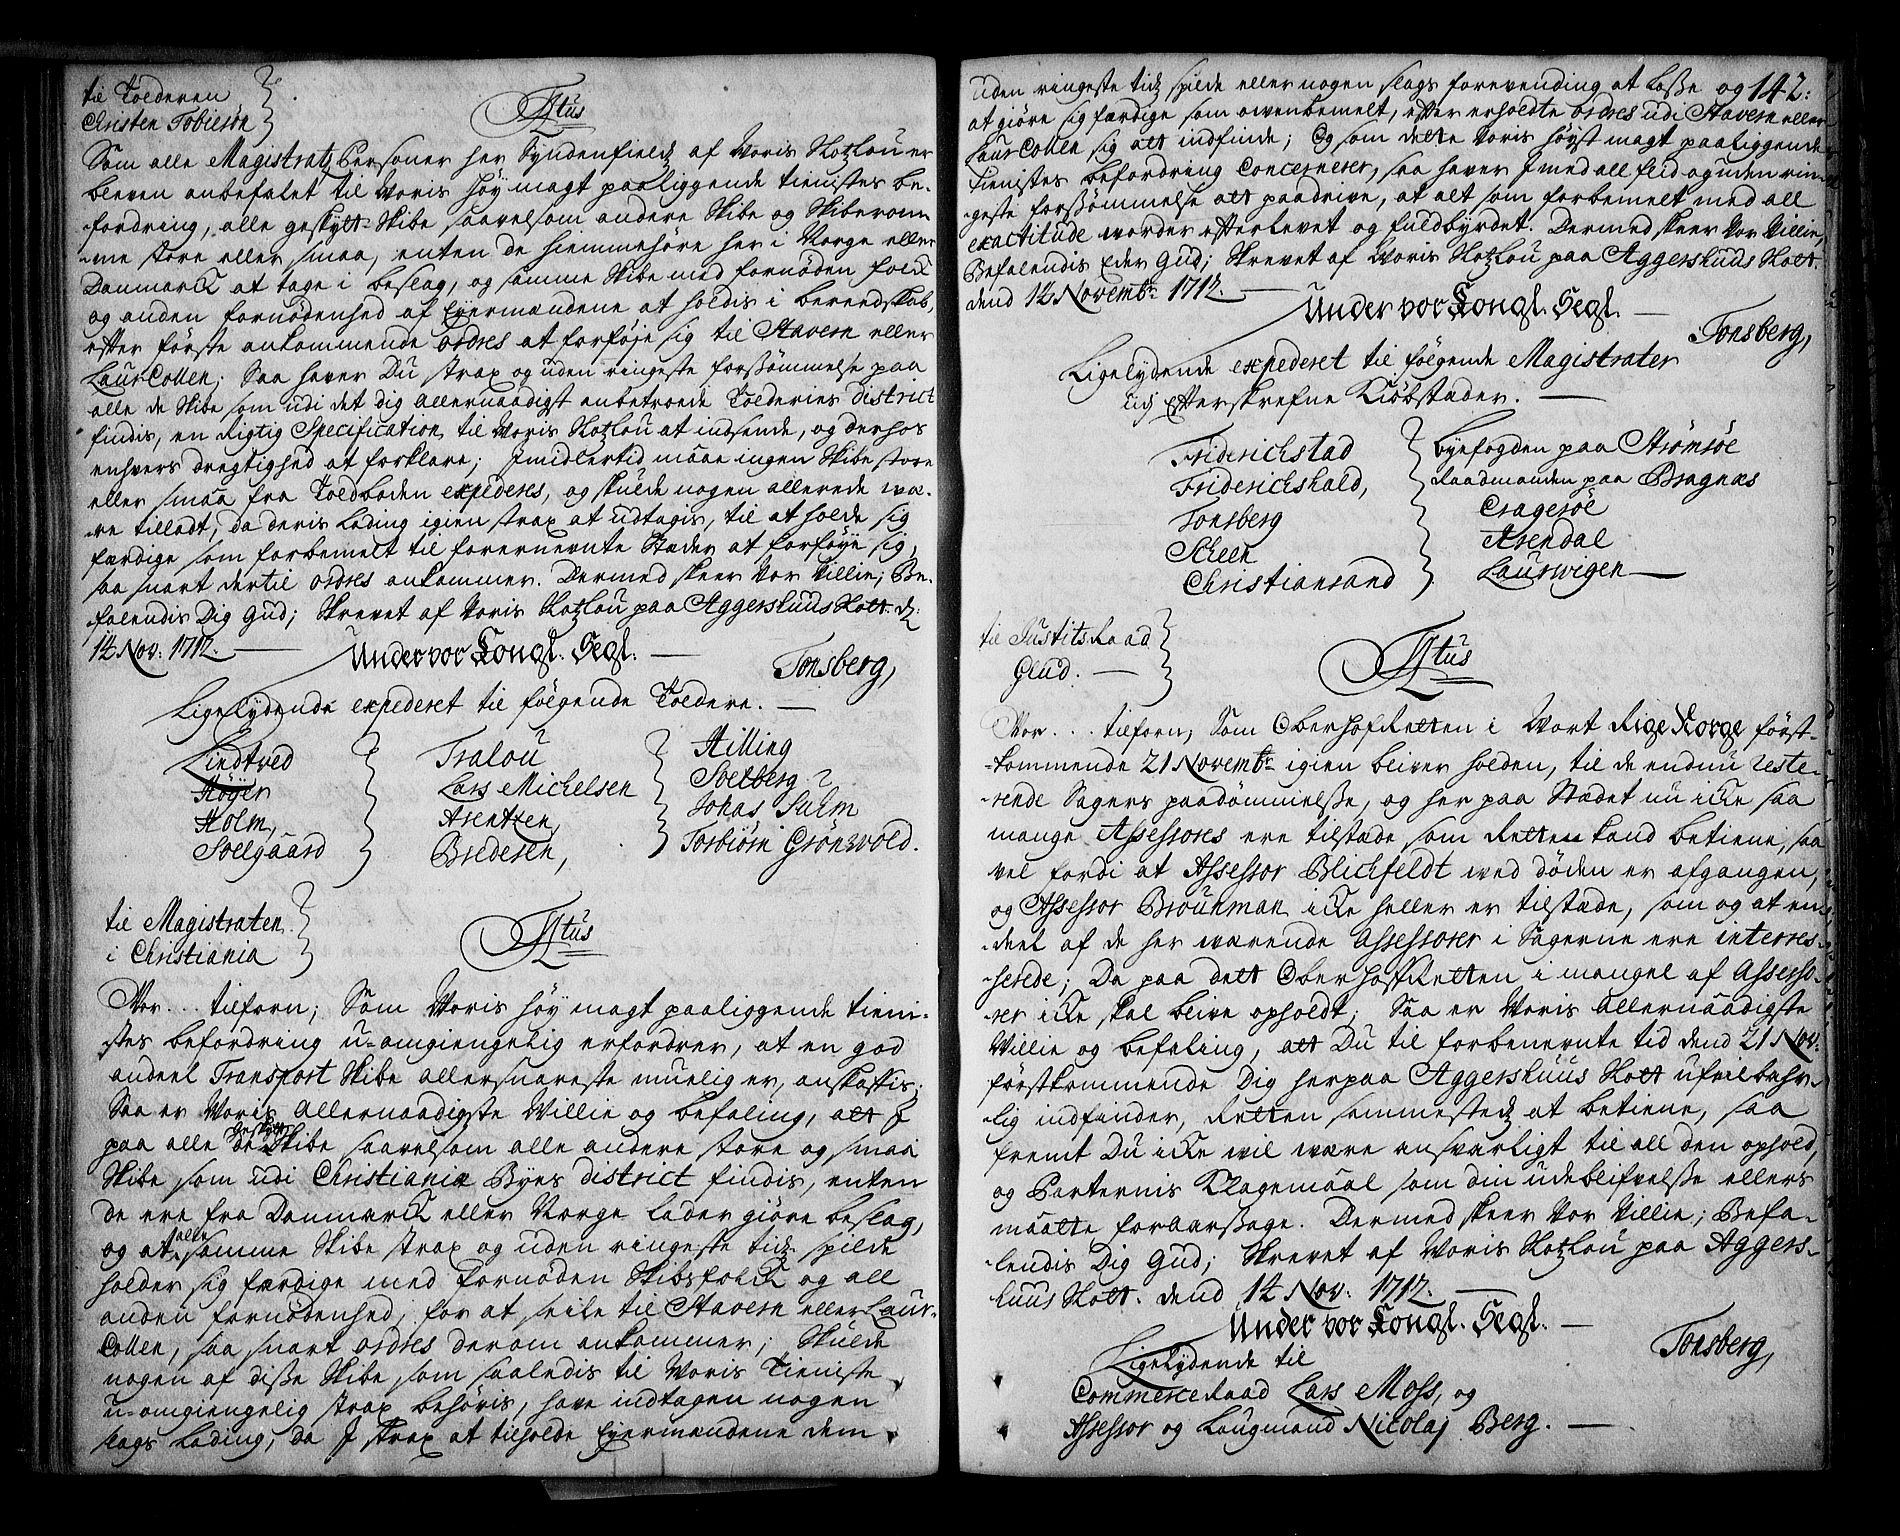 til Tolderen
Christen Tobiesøn
Titus
Som alle Magistratz Personer her Syndenfieldz af Voris Slotzlou er
bleven anbefalet til Voris høy magt paaliggende tienistes be-
fordring, alle geskytt Skibe saavelsom andere Skibe og Skiberom-
me store eller smaa, enten de hiemmehöre her i Norge eller
Danmarck at tage i beslag, og samme Skibe med fornöden folck
og anden fornödenhed af Eyermændene at holdis i beredskab,
efter förste ankommende ordres at forföje sig til Stavern eller
LaurCollen; Saa haver Du strax og uden ringeste forsömmelse paa
alle de Skibe som udi det dig allernaadigst anbetroede Tolderies district
findis, en Rigtig Specification til Voris Slotzlou at indsende, og derhos
enhvers dregtighed at forklare; Imidlertid maae ingen Skibe store
eller smaa fra Toldboden expederes, og skulde nogen allerede væ-
re tilladt, da deris Lading igien strax at udtagis, til at holde sig
færdige som forbemelt til forernevnte Stæder at forföye sig,
saa snart dertil ordres ankommer. Dermed skeer Vor Villie; Be-
falendis Dig Gud; Skrevet af Voris Slotzlou paa Aggershuus Slott d:
14 Nov: 1712.
Under vor Kongl. Segl.
Tonsberg,
Ligelydende expederet til følgende Toldere.
Lindtved
Höyer
Holm,
Soelgaard
Tralou
Lars Michelsen
Arentzen,
Bredesen,
Hilling
Soelberg
Johas Sulm
Torbiörn Grönwold.
til Magistraten
i Christiania
Titus
Vor... tilforn; Som Voris höy magt paaliggende tieni-
stes befordring u-omgiengelig erfordrer, at en god
andeel Transport Skibe allersnareste muelig er, anskaffis;
Saa er Voris allernaadigste Villie og befaling, att I
paa alle de Geskytt Skibe saavelsom alle andere store og smaa
Skibe som udi Christiania Byes district findis, enten
de ere fra Danmarck eller Norge lader giöre beslag,
og at alle samme Skibe strax og uden ringeste tidz spilde
holder sig færdige med fornöden Skibsfolck og all
anden fornödenhed, for at seile til Stavern eller Laur-
Collen, saa snart ordres derom ankommer; Skulde
nogen af disse Skibe som saaledis til Voris Tieniste
u-omgiengelig strax behöris, have indtagen nogen
slags Lading, da I strax at tilholde Eyermændene dem
142:
uden ringeste tidz spilde eller nogen slags forevending at losse og
at giöre sig færdige som ovenbemelt, efter erholdte ordres udi Stavern eller
LaurCollen sig att indfinde; Og som dette Voris höyst magt paaliggende
Tienistes befordring Concernerer, saa haver I med all flid og uden rin-
geste forsömmelse att paadrive, at alt som forbemelt med all
exactitude vorder efterlevet og fuldbyrdet. Dermed skeer Vor Villie,
Befalendis Eder Gud; Skrevet af Voris Slotzlou paa Aggershuus Slott.
dend 14 Novembr: 1712.
Under vor Kongl. Segl.
Tonsberg,
Ligelydende expederet til følgende Magistrater
udj Efterskrefne Kiöbstæder.
Friderichstad
Friderichshald,
Tonsberg
Scheen
Christiansand
byefogden paa Strömsöe
Raadmanden paa Bragnæs
Cragerøe
Arendal
Laurwigen
til JustitsRaad
Glud.
Titus
Vor... tilforn, Som OberhofRetten i Vort Rige Norge först-
kommende 21 Novembr: igien bliver holden, til de endnu reste-
rende Sagers paadömmelsse, og her paa Stædet nu icke saa
mange Assessores ere tilstæde som Retten kand betiene, saa
vel fordi at Assessor Blichfeldt ved döden er afgangen,
og Assessor Brouhman icke heller er tilstæde, som og at en
deel af de her værende Assessorer i Sagerne ere interres-
serede; Da paa dett OberhoffRetten i mangel af Assesso-
rer icke skal blive opholdt; Saa er Voris allernaadigste
Villie og befaling, att Du til forbenevnte tid dend 21 Nov:
förstkommende Dig her paa Aggershuus Slott ufeilbahr-
lig indfinder, Retten sammestedz at betiene, saa
fremt Du icke vil være ansvarligt til all den ophold,
og Parternis Klagemaal som din udeblifvelsse ellers
maatte foraarsage. Dermed skeer Vor Villie; Befa-
lendis Dig Gud; Skrevet af Voris Slotzlou paa Aggers-
huus Slott. dend 14 Nov: 1712.
Under vor Kongl. Segl.
Tonsberg,
Ligelydende til
CommerceRaad Lars Moss, og
Assessor og Laugmand Nicolaj Berg.